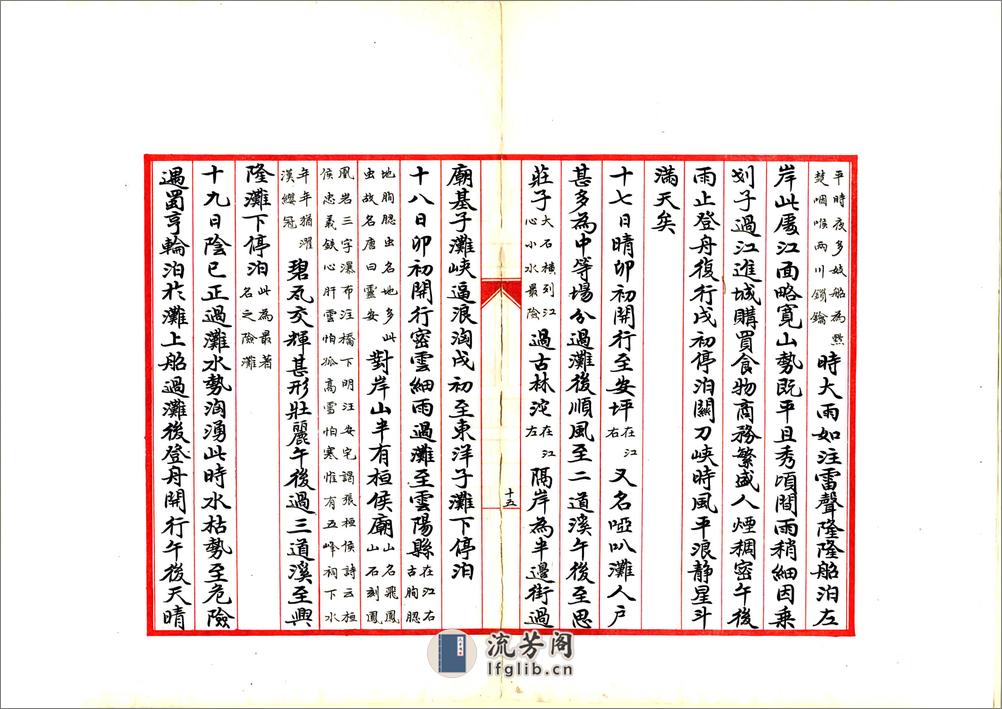 平時夜多妓船為然
楚咽喉兩川鎖鑰
時大雨如注雷聲隆隆船泊左
岸此處江面略寬山勢既平且秀頃間雨稍細因乘
划子過江進城購買食物商務繁盛人煙稠密午後
雨止登舟復行戌初停泊關刀峽時風平浪靜星斗
滿天矣
十七日晴卯初開行至安坪在江右又名啞叭灘人戶
甚多為中等場分過灘後順風至二道溪午後至思
莊子大石橫列江心小水最險過古林沱在江左隔岸為半邊街過
十五
廟基子灘峽逼浪淘戌初至東洋子灘下停泊
十八日卯初開行密雲細雨過灘至雲陽縣在江右古朐䏰
地朐䏰虫名地多此虫故名唐曰雲安對岸山半有桓侯廟山名飛鳳山石刻鳳
凰岩三字瀑布注橋下明汪安宅謁張桓侯詩云桓
侯忠義鉄心肝雲怕孤高雪怕寒惟有五峰祠下水
年年猶濯漢纓冠碧瓦交輝甚形壯麗午後過三道溪至興
隆灘下停泊此為最著名之險灘
十九日陰已正過灘水勢淘湧此時水枯勢至危險
遇蜀亨輪泊於灘上船過灘後登舟開行午後天晴
流芳阁
lfglib.cn